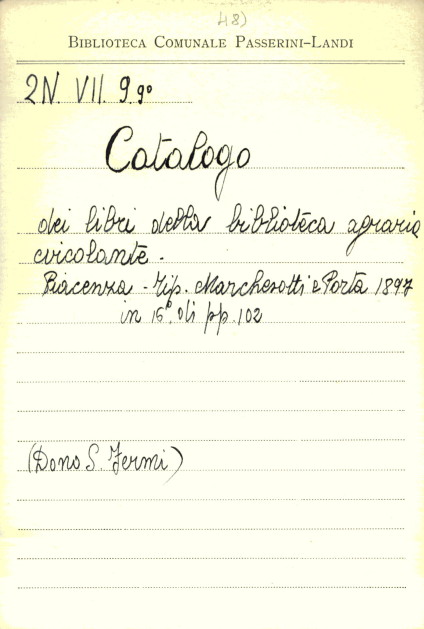 48)
BIBLIOTECA COMUNALE PASSERINI-LANDI
2N. VII. 9.9°
Catalogo
dei libri della biblioteca agraria
circolante.
Piacenza - Tip. Marchesotti e Porta 1897
in 16° di pp. 102
(Dono S. Fermi)